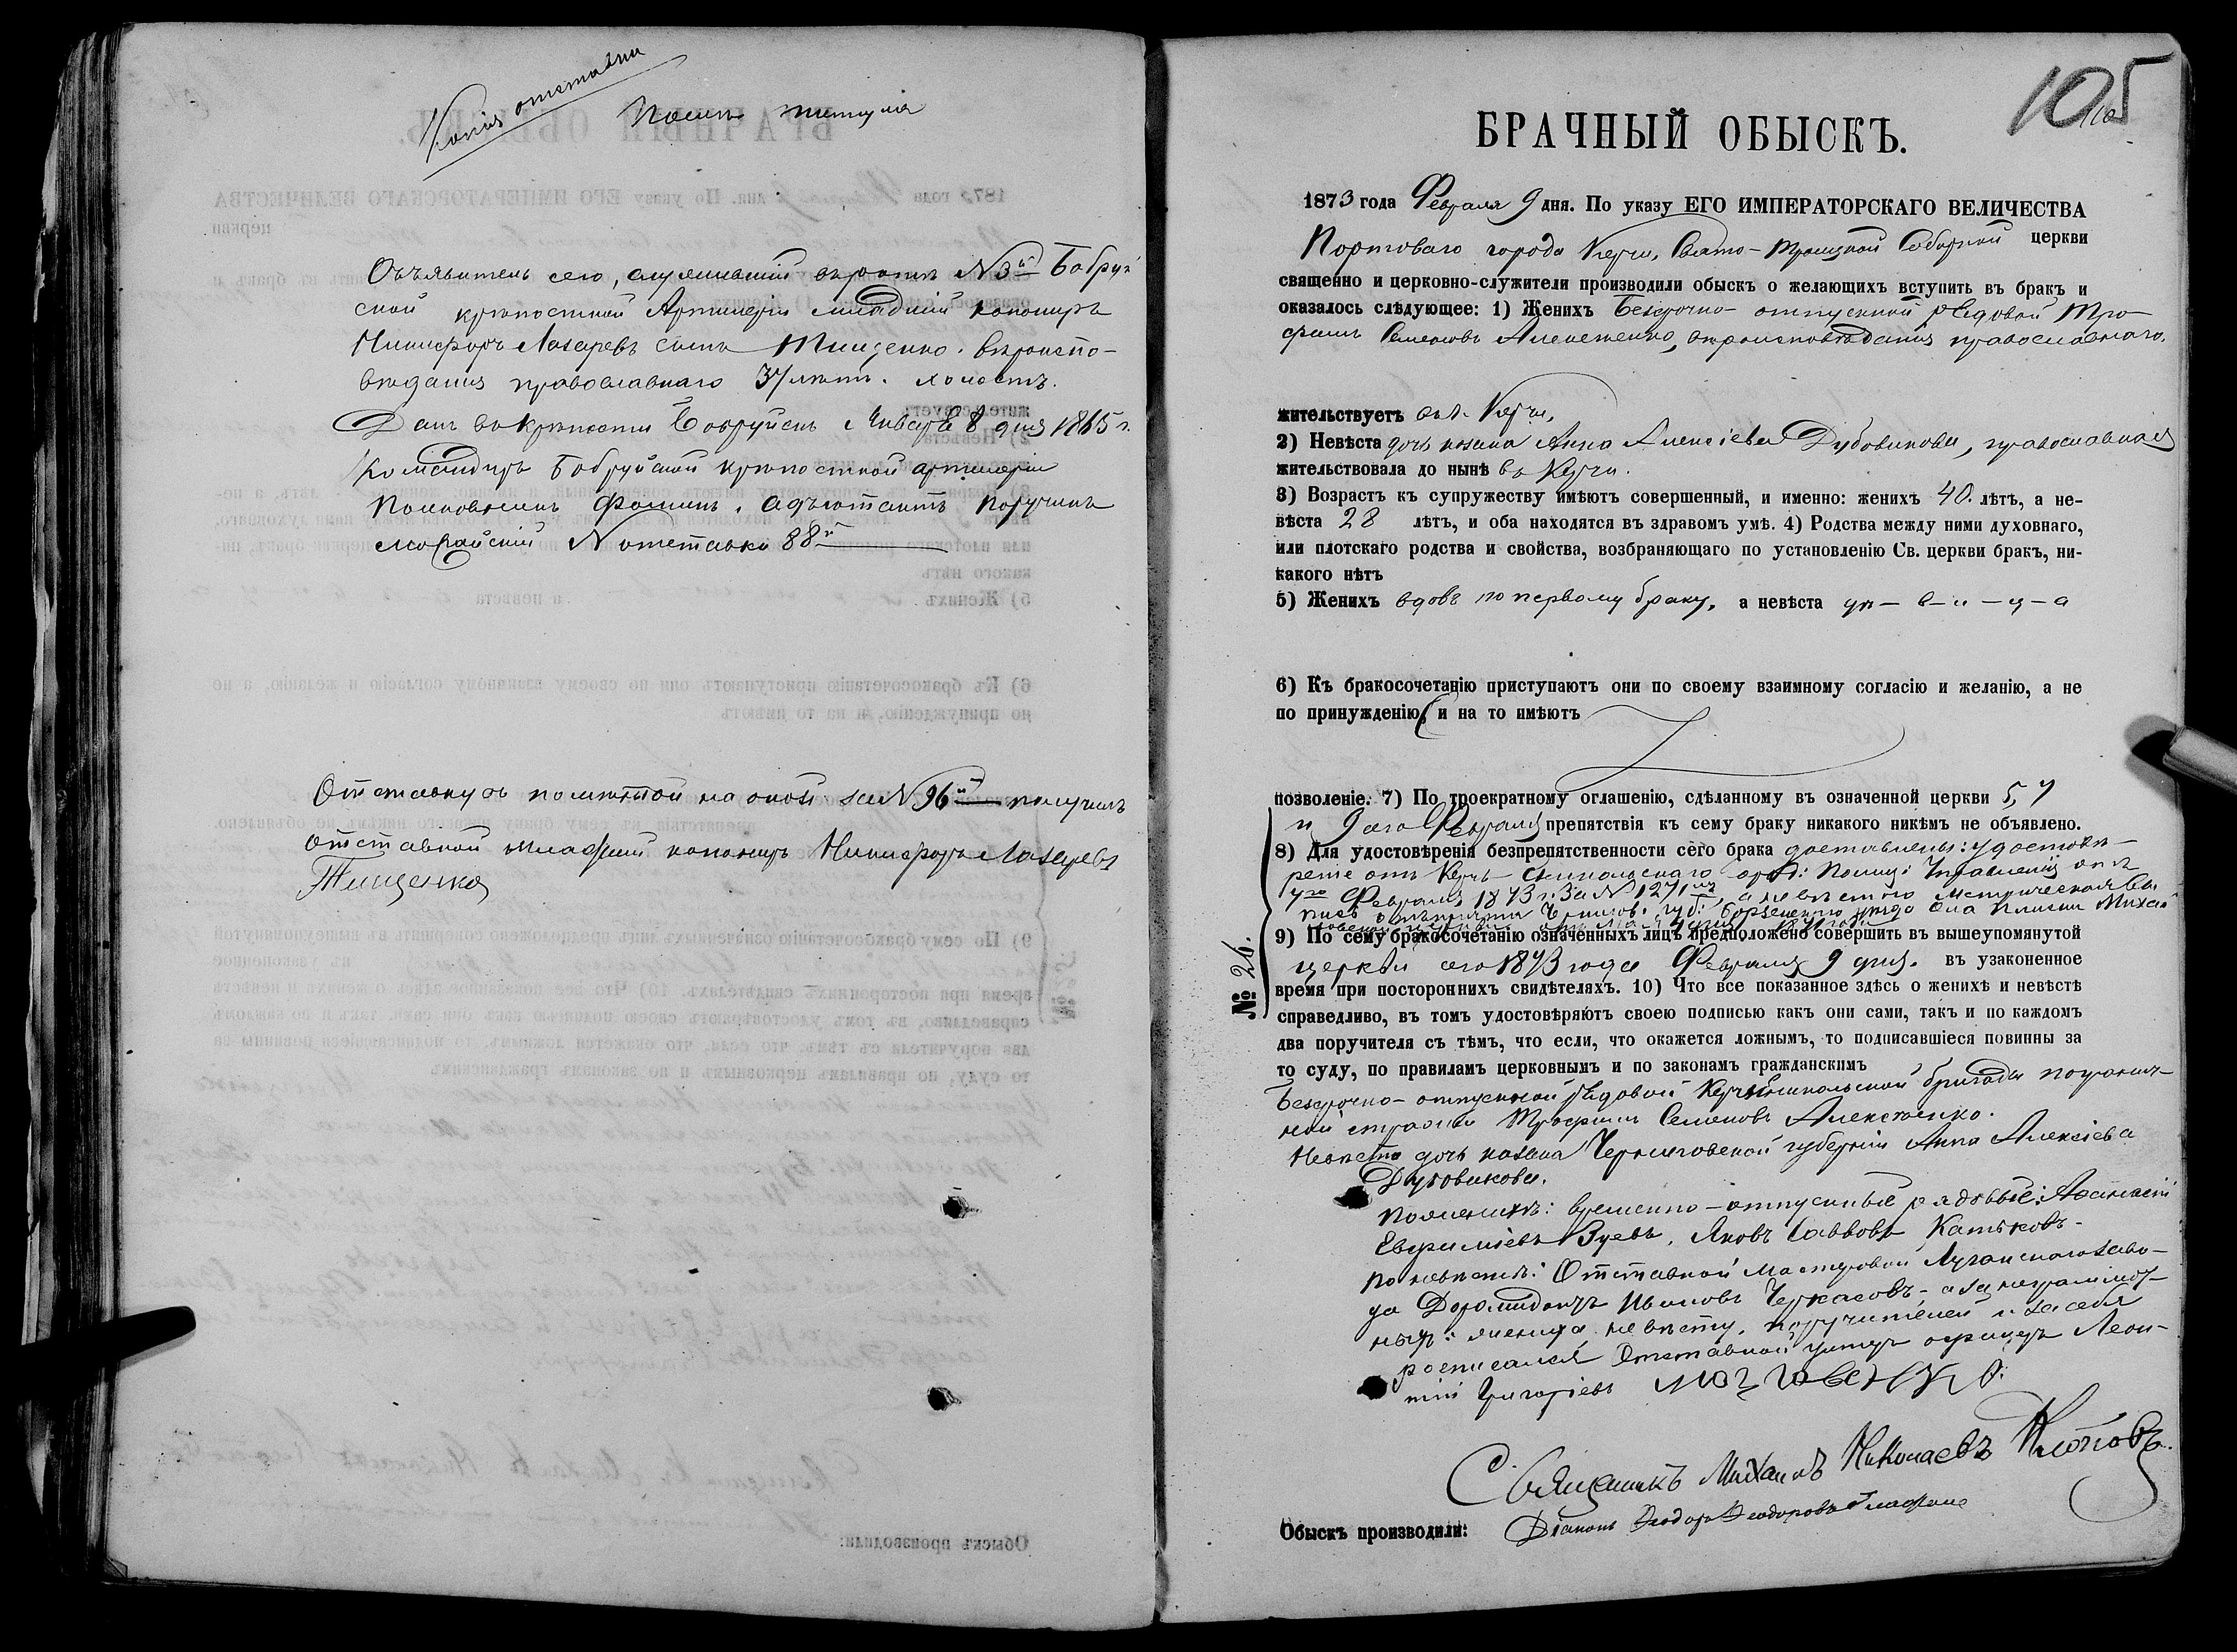 Копія отставки
Послѣ титула
Объявитель сего, служившій въ ротѣ №3й Бобруй
ской крѣпостной Артилеріи младшій канониръ
Никифоръ Лазаревъ сынъ Тищенко. вѣроиспо-
вѣданія православнаго 37 лѣтъ. холостъ.
Данъ въ крѣпости Бобруйскъ Января 8 дня 1865 г.
Командиръ Бобруйской крѣпостной артилеріи
Полковникъ Фоминъ. Адъютантъ Поручикъ
№ отставки 88й
Отставку съ помѣткой на оной за №96й получилъ
отставной младшій канониръ Никифоръ Лазаревъ
Тищенко
105
БРАЧНЫЙ ОБЫСКЪ.
1873 года Февраля 9 дня. По указу ЕГО ИМПЕРАТОРСКАГО ВЕЛИЧЕСТВА
Портоваго города Керчи, Свято-Троицкой Соборной церкви
священно и церковно-служители производили обыскъ о желающихъ вступить въ бракъ и
оказалось слѣдующее: 1) Женихъ Безсрочно-отпускной рядовой Тро-
фимъ Семеновъ Алексѣенко, вѣроисповѣданія православнаго.
жительствуетъ въ г. Керчи,
2) Невѣста дочь козака Анна Алексіева Дубовикова, православная
жительствовала до нынѣ въ Керчи.
3) Возрастъ къ супружеству имѣютъ совершенный, и именно: женихъ 40. лѣтъ, а не-
вѣста 28 лѣтъ, и оба находятся въ здравомъ умѣ. 4) Родства между ними духовнаго,
или плотскаго родства и свойства, возбраняющаго по установленію Св. церкви бракъ, ни-
какого нѣтъ
5) Женихъ вдовъ по первому браку, а невѣста дѣ-в-и-ц-а
6) Къ бракосочетанію приступаютъ они по своему взаимному согласію и желанію, а не
по принужденію, и на то имѣютъ
позволеніе. 7) По троекратному оглашенію, сдѣланному въ означенной церкви 5, 7
и 9 сего Февраля препятствія къ сему браку никакого никѣмъ не объявлено.
8) Для удостовѣренія безпрепятственности сего брака доставлены: удостовѣ-
реніе отъ Керчь Еникольскаго Полиц: Управленія отъ
7го Февраля 1873 г: за №1271мъ, а невѣстою метрическая вы
пись Чернигов. губ: Борзенскаго уѣзда села Плиски Михай
9) По сему бракосочетанію означенныхъ лицъ предположено совершить въ вышеупомянутой
церкви сего 1873 года Февраля 9 дня. въ узаконенное
№ 26.
время при постороннихъ свидѣтеляхъ. 10) Что все показанное здѣсь о женихѣ и невѣстѣ
справедливо, въ томъ удостовѣряютъ своею подписью какъ они сами, такъ и по каждомъ
два поручителя съ тѣмъ, что если, что окажется ложнымъ, то подписавшіеся повинны за
то суду, по правиламъ церковнымъ и по законамъ гражданскимъ
Безсрочно-отпускной рядовой Керчь-Еникольской бригады погранич-
ной стражи Трофимъ Семеновъ Алексѣенко.
Невѣста дочь козака Черниговской губерніи Анна Алексіева
Дубовикова.
По женихѣ: временно-отпускные рядовые: Афанасій
Евфиміевъ Зуевъ, Яковъ Саввовъ Катьковъ-
по невѣстѣ: Отставной мастеровой Луганскаго заво-
да Доримидонтъ Ивановъ Черкасовъ- а за неграмот-
ныхъ: жениха, невѣсту, поручителей и за себя
росписался Отставной унтеръ офицеръ Леон-
тій Григоріевъ
Священникъ Михаилъ Николаевъ
Обыскъ производили: Діаконъ Ѳеодоръ Ѳеодоровъ